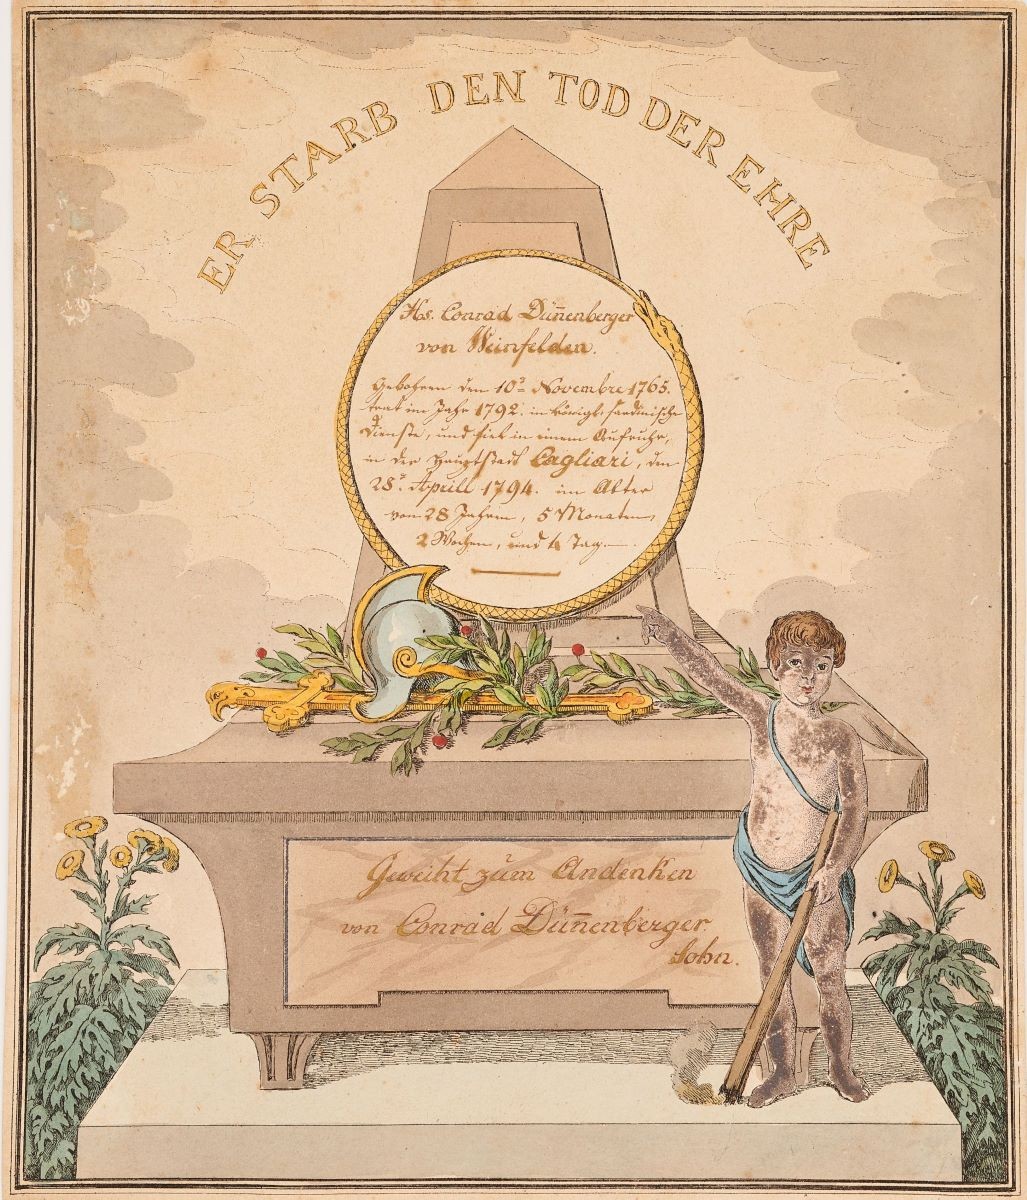 ER STARB DEN TOD DER EHRE
Hs. Conrad Dün̄enberger
von Weinfelden.
Gebohren den 10ᵗ Novembre 1765.
trat im Jahr 1792. in königl. sardinische
Dienste, und fiel in einem Aufruhr,
in der Hauptstadt Cagliari, den
28ᵗ Aprill 1794. im Alter
von 28 Jahren, 5 Monaten,
2 Wochen, und 4 Tag.
Geweiht zum Andenken
von Conrad Dün̄enberger
Sohn.